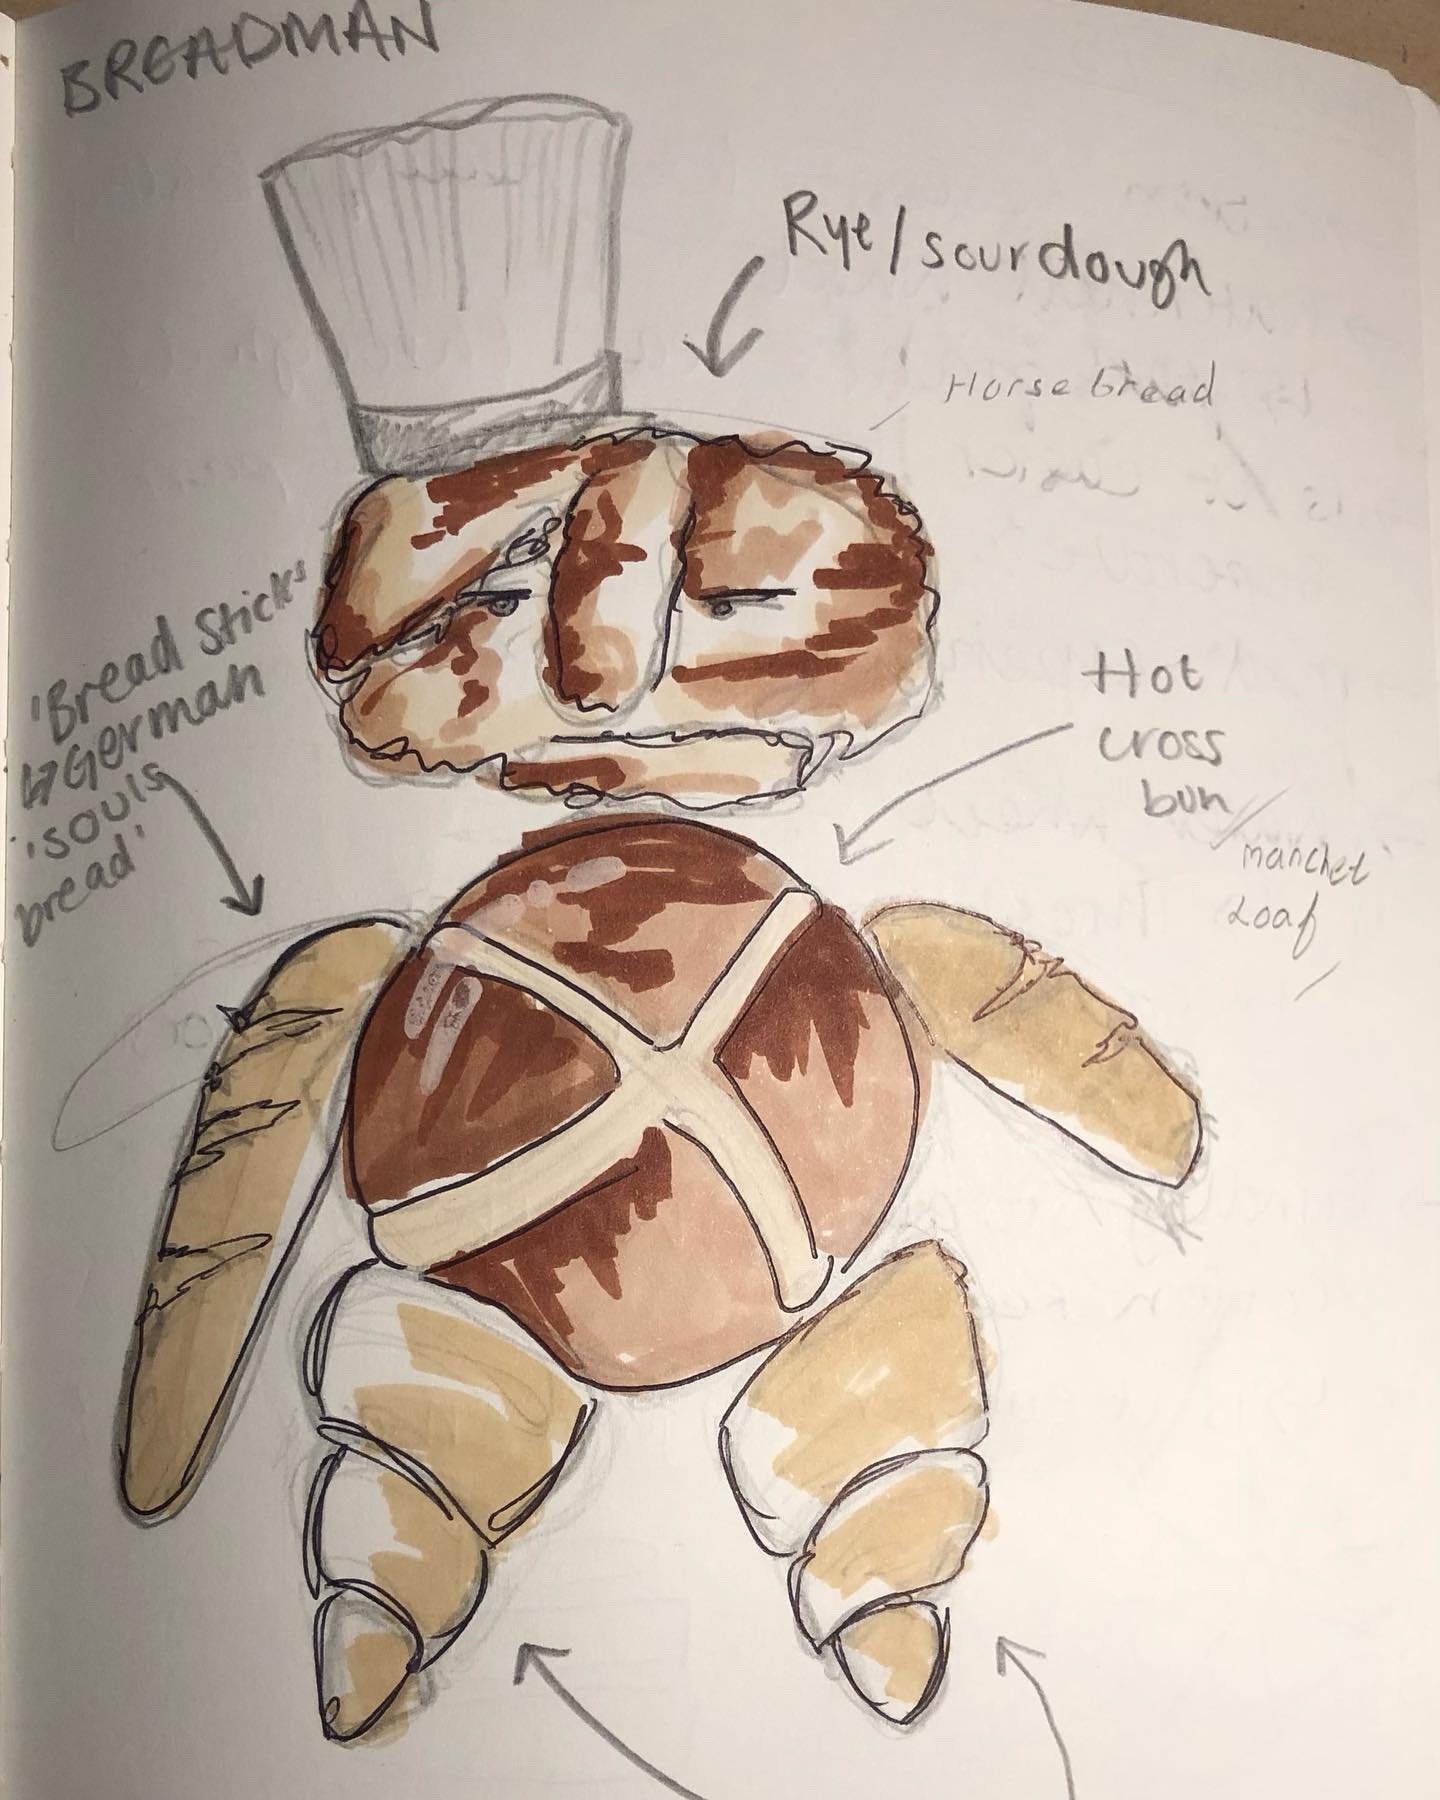 BREADMAN
Rye/sourdough
Horse bread
'Bread Sticks'
↳German
'souls
bread'
Hot
cross
bun/
manchet
Loaf